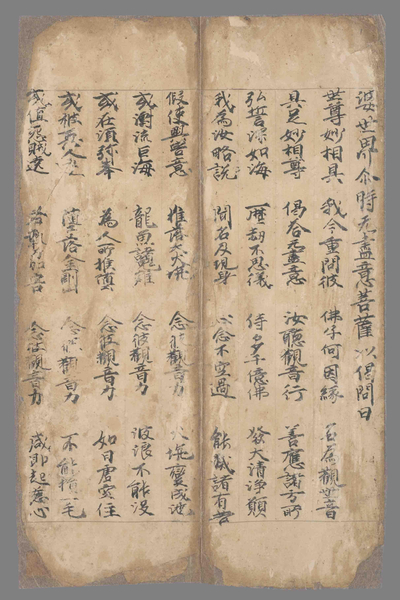 娑世界尒時无盡意菩薩以偈問曰
世尊妙相具 我今重問彼 佛子何因緣 名為觀世音
具足妙相尊 偈答无盡意 汝聽觀音行 善應諸方所
弘誓深如海 歷劫不思議 侍多千億佛 發大清淨願
我為汝略說 聞名及現身 心念不空過 能滅諸有苦
假使興害意 推落大火坑 念彼觀音力 火坑變成池
或漂流巨海 龍魚諸鬼難 念彼觀音力 波浪不能没
或在須弥峯 為人所推墮 念彼觀音力 如日虛空住
或被惡人逐 墮落金剛山 念彼觀音力 不能損一毛
或值怨賊遶 各執刀加害 念彼觀音力 咸即起慈心